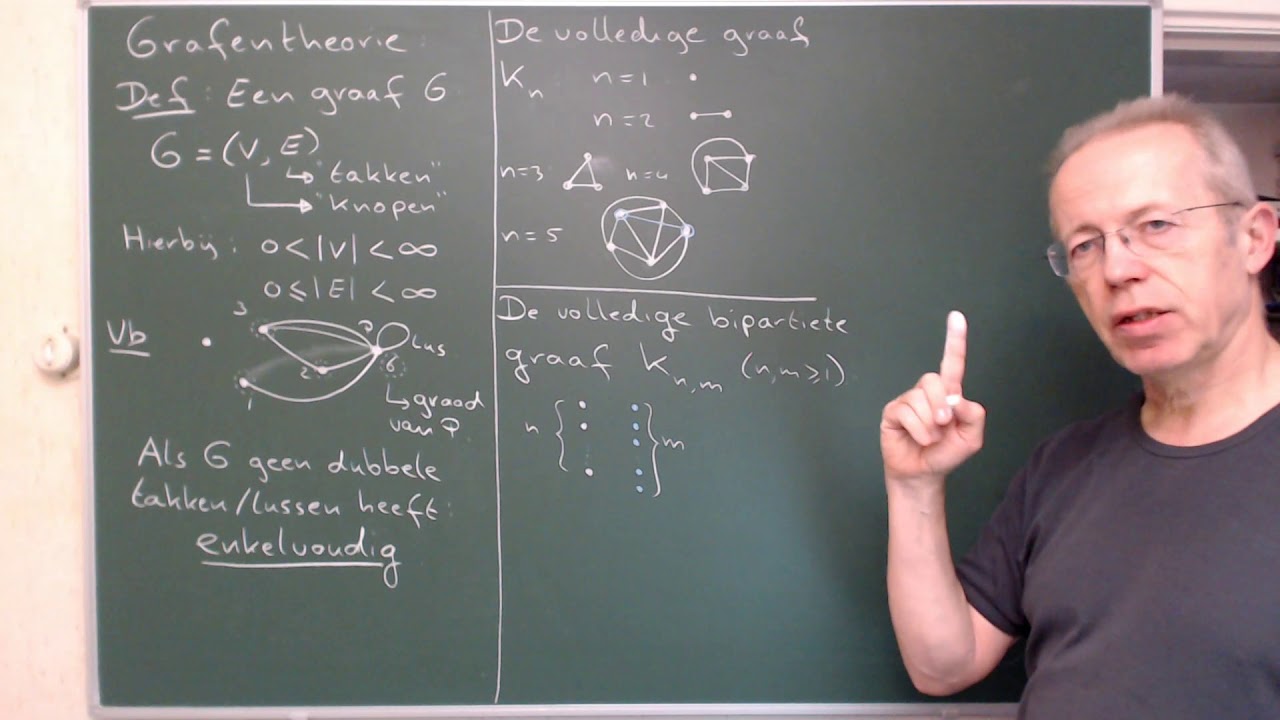 Grafentheorie:
Def: Een graaf G
G = (V, E)
"takken"
"knopen"
Hierbij: 0 < |V| < ∞
0 ≤ |E| < ∞
Vb
3
P
lus
2
6
1
graad
van P
Als G geen dubbele
takken/lussen heeft:
enkelvoudig
De volledige graaf
Kn n=1
n=2
n=3 n=4
n=5
De volledige bipartiete
graaf Kn,m (n,m ≥ 1)
n { } m